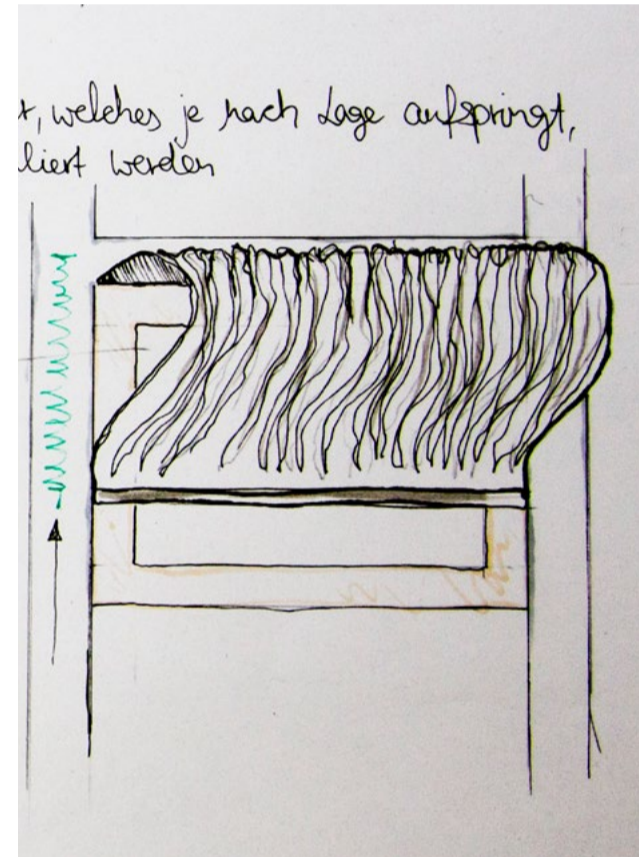 t, welches je nach Lage aufspringt,
liert werden